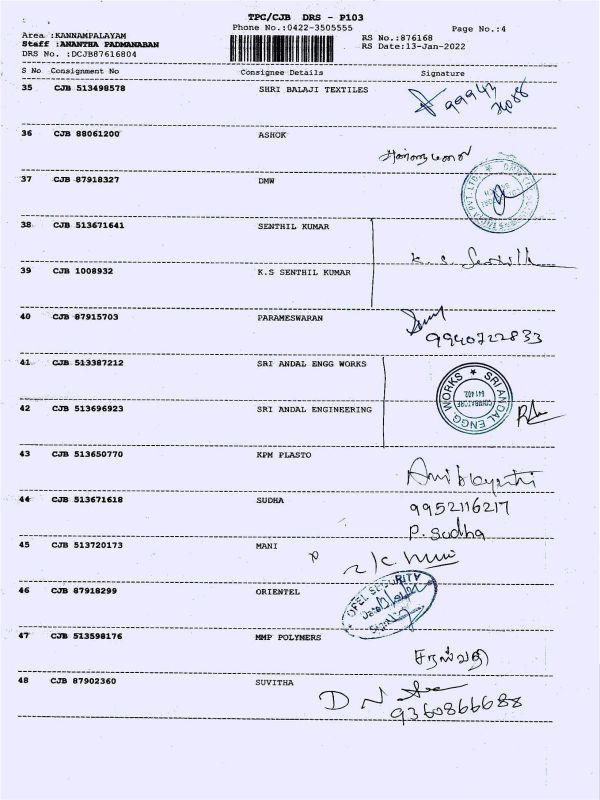 TPC/CJB DRS - P103
Phone No.:0422-3505555
Page No.:4
Area :KANNAMPALAYAM
RS No.:876168
Staff :ANANTHA PADMANABAN
RS Date:13-Jan-2022
DRS No. :DCJB87616804
S No Consignment No Consignee Details Signature
35 CJB 513498578 SHRI BALAJI TEXTILES
36 CJB 88061200 ASHOK
37 CJB 87918327 DMW
38 CJB 513671641 SENTHIL KUMAR
39 CJB 1008932 K.S SENTHIL KUMAR
K. S. Senthil
40 CJB 87915703 PARAMESWARAN
9940722833
41 CJB 513387212 SRI ANDAL ENGG WORKS
SRI ANDAL ENGG. WORKS
COIMBATORE
641 402.
42 CJB 513696923 SRI ANDAL ENGINEERING
43 CJB 513650770 KPM PLASTO
44 CJB 513671618 SUDHA
9952116217
P. Sudha
45 CJB 513720173 MANI
46 CJB 87918299 ORIENTEL
OPEL SECURITY
Date
Sign
47 CJB 513598176 MMP POLYMERS
சரஸ்வதி
48 CJB 87902360 SUVITHA
D N
9360866688